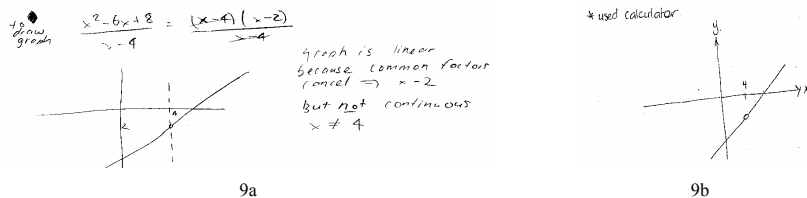 to
draw
graph
x² - 6x + 8 / x - 4 = (x - 4)(x - 2) / x - 4
Graph is linear
because common factors
cancel ⇒ x - 2
But not continuous
x ≠ 4
4
2
9a
* used calculator
y
4
x
9b